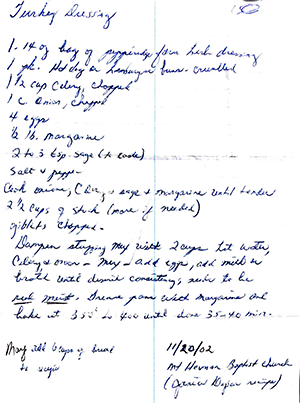 Turkey Dressing
1 - 14 oz bag of pepperidge farm herb dressing
1 pk. Hot dog or hamburger buns - crumbled
1 1/2 cup Celery, chopped
1 c. onion, chopped
4 eggs
1/2 lb. margarine
2 to 3 tsp. sage (to taste)
Salt & pepper
Cook onions, Celery & sage & margarine until tender
2 1/2 cups of stock (more if needed)
giblets chopped -
Dampen stuffing mix with 2 cups hot water,
Celery & onion - mix - add eggs, add milk or
broth until desired consistency, needs to be
real moist. Grease pan with margarine and
bake at 350° to 400 until done 35-40 min.
May add 6 cups of bread
to recipe
11/20/02
Mt Hermon Baptist Church